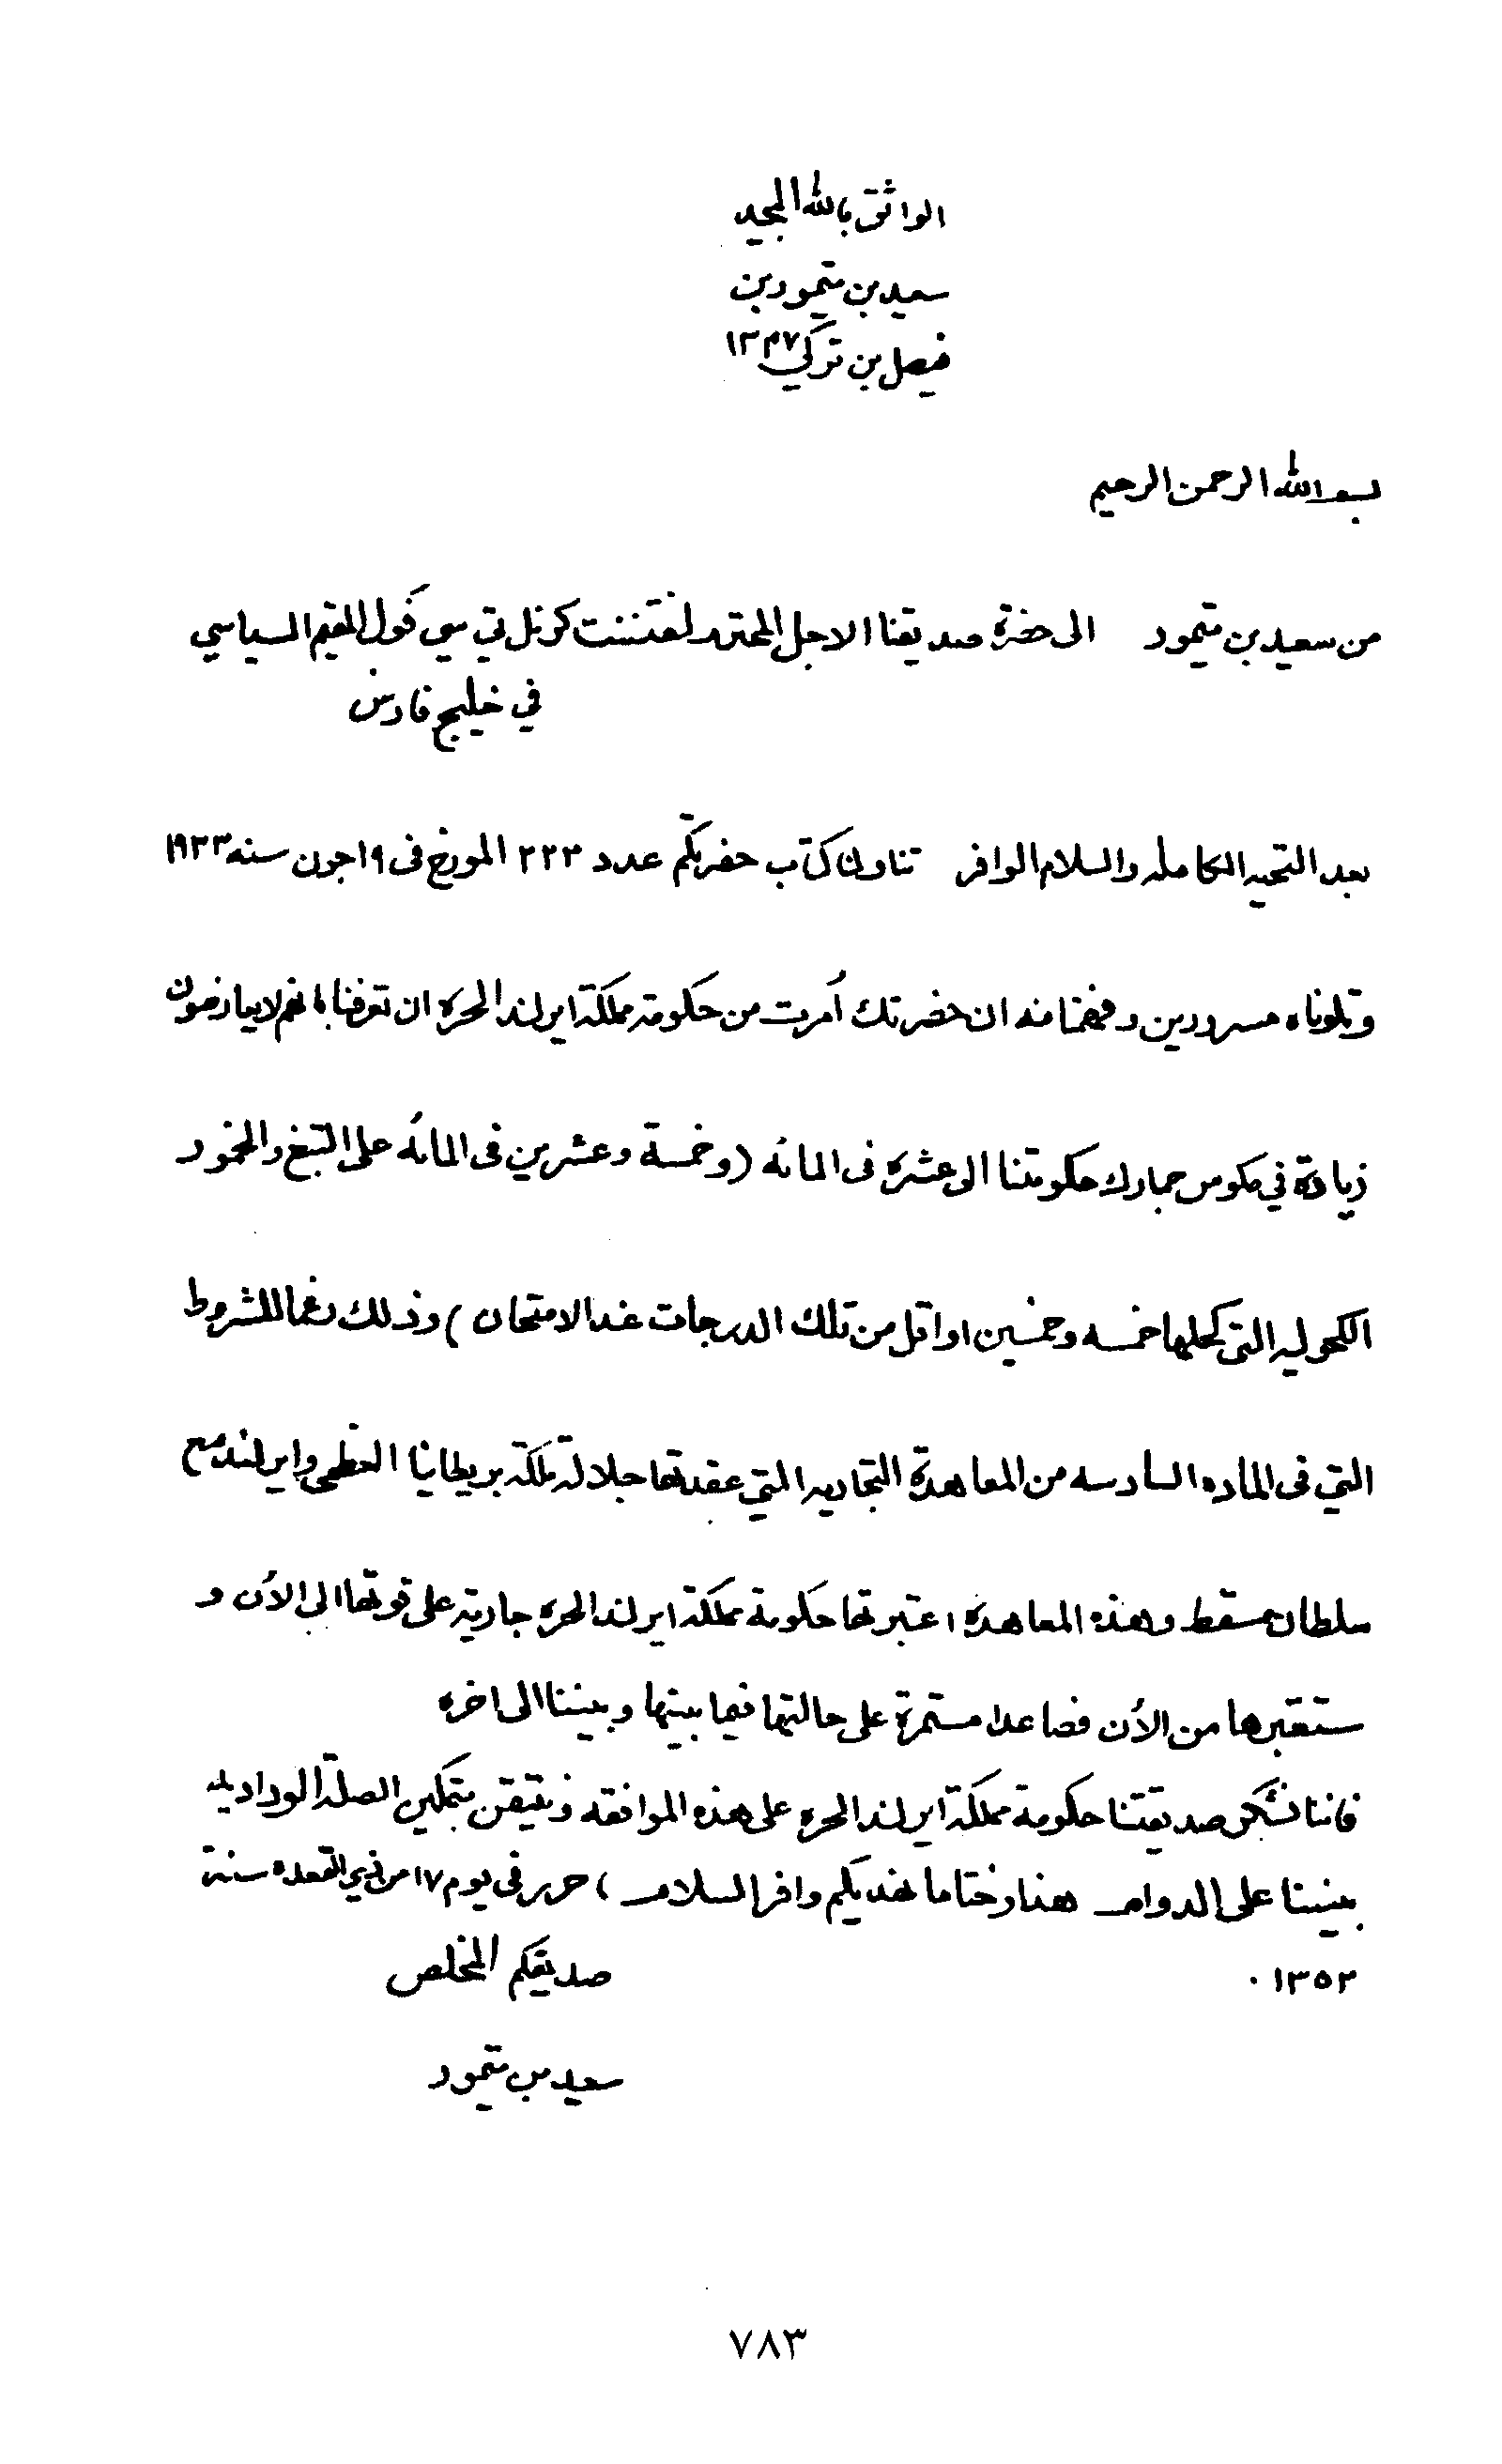 الواثق بالله المجيد
سعيد بن تيمور بن
فيصل بن تركي ١٣٤٧
بسم الله الرحمن الرحيم
من سعيد بن تيمور الى حضرة صديقنا الاجل المحترم لفتننت كرنل تي سي فول المقيم السياسي
في خليج فارس
بعد التحيه الكامله والسلام الوافر تناولنا كتاب حضرتكم عدد ٢٢٣ المورخ فى ١٩ جون سنه ١٩٣٣
وتلوناه مسرورين وفهمنا منه ان حضرتك أمرت من حكومة مملكة ايرلند الحره ان تعرفنا بانهم لايعارضون
زيادة في مكوس جمارك حكومتنا الى عشره فى المائه (وخمسة وعشرين فى المائه على التبغ والخمور
الكحوليه التى كحلها خمسه وخمسين او اقل من تلك الدرجات عند الامتحان) وذلك رغما للشروط
التي فى الماده السادسه من المعاهدة التجاريه التي عقدتها جلالة ملكة بريطانيا العظمى وايرلند مع
سلطان مسقط وهذه المعاهده اعتبرتها حكومة مملكة ايرلند الحره جارية على قوتها الى الأن و
ستعتبرها من الأن فصاعدا مستمرة على حالتها فيما بينها وبيننا الى اخره
فاننا نشكر صديقتنا حكومة مملكة ايرلند الحره على هذه الموافقه ونتيقن بتمكين الصلة الوداديه
بيننا على الدوام هذا وختاما نهديكم وافر السلام، حرر فى يوم ١٧ من ذي القعده سنة
١٣٥٢ ٠
صديقكم المخلص
سعيد بن تيمور
٧٨٣